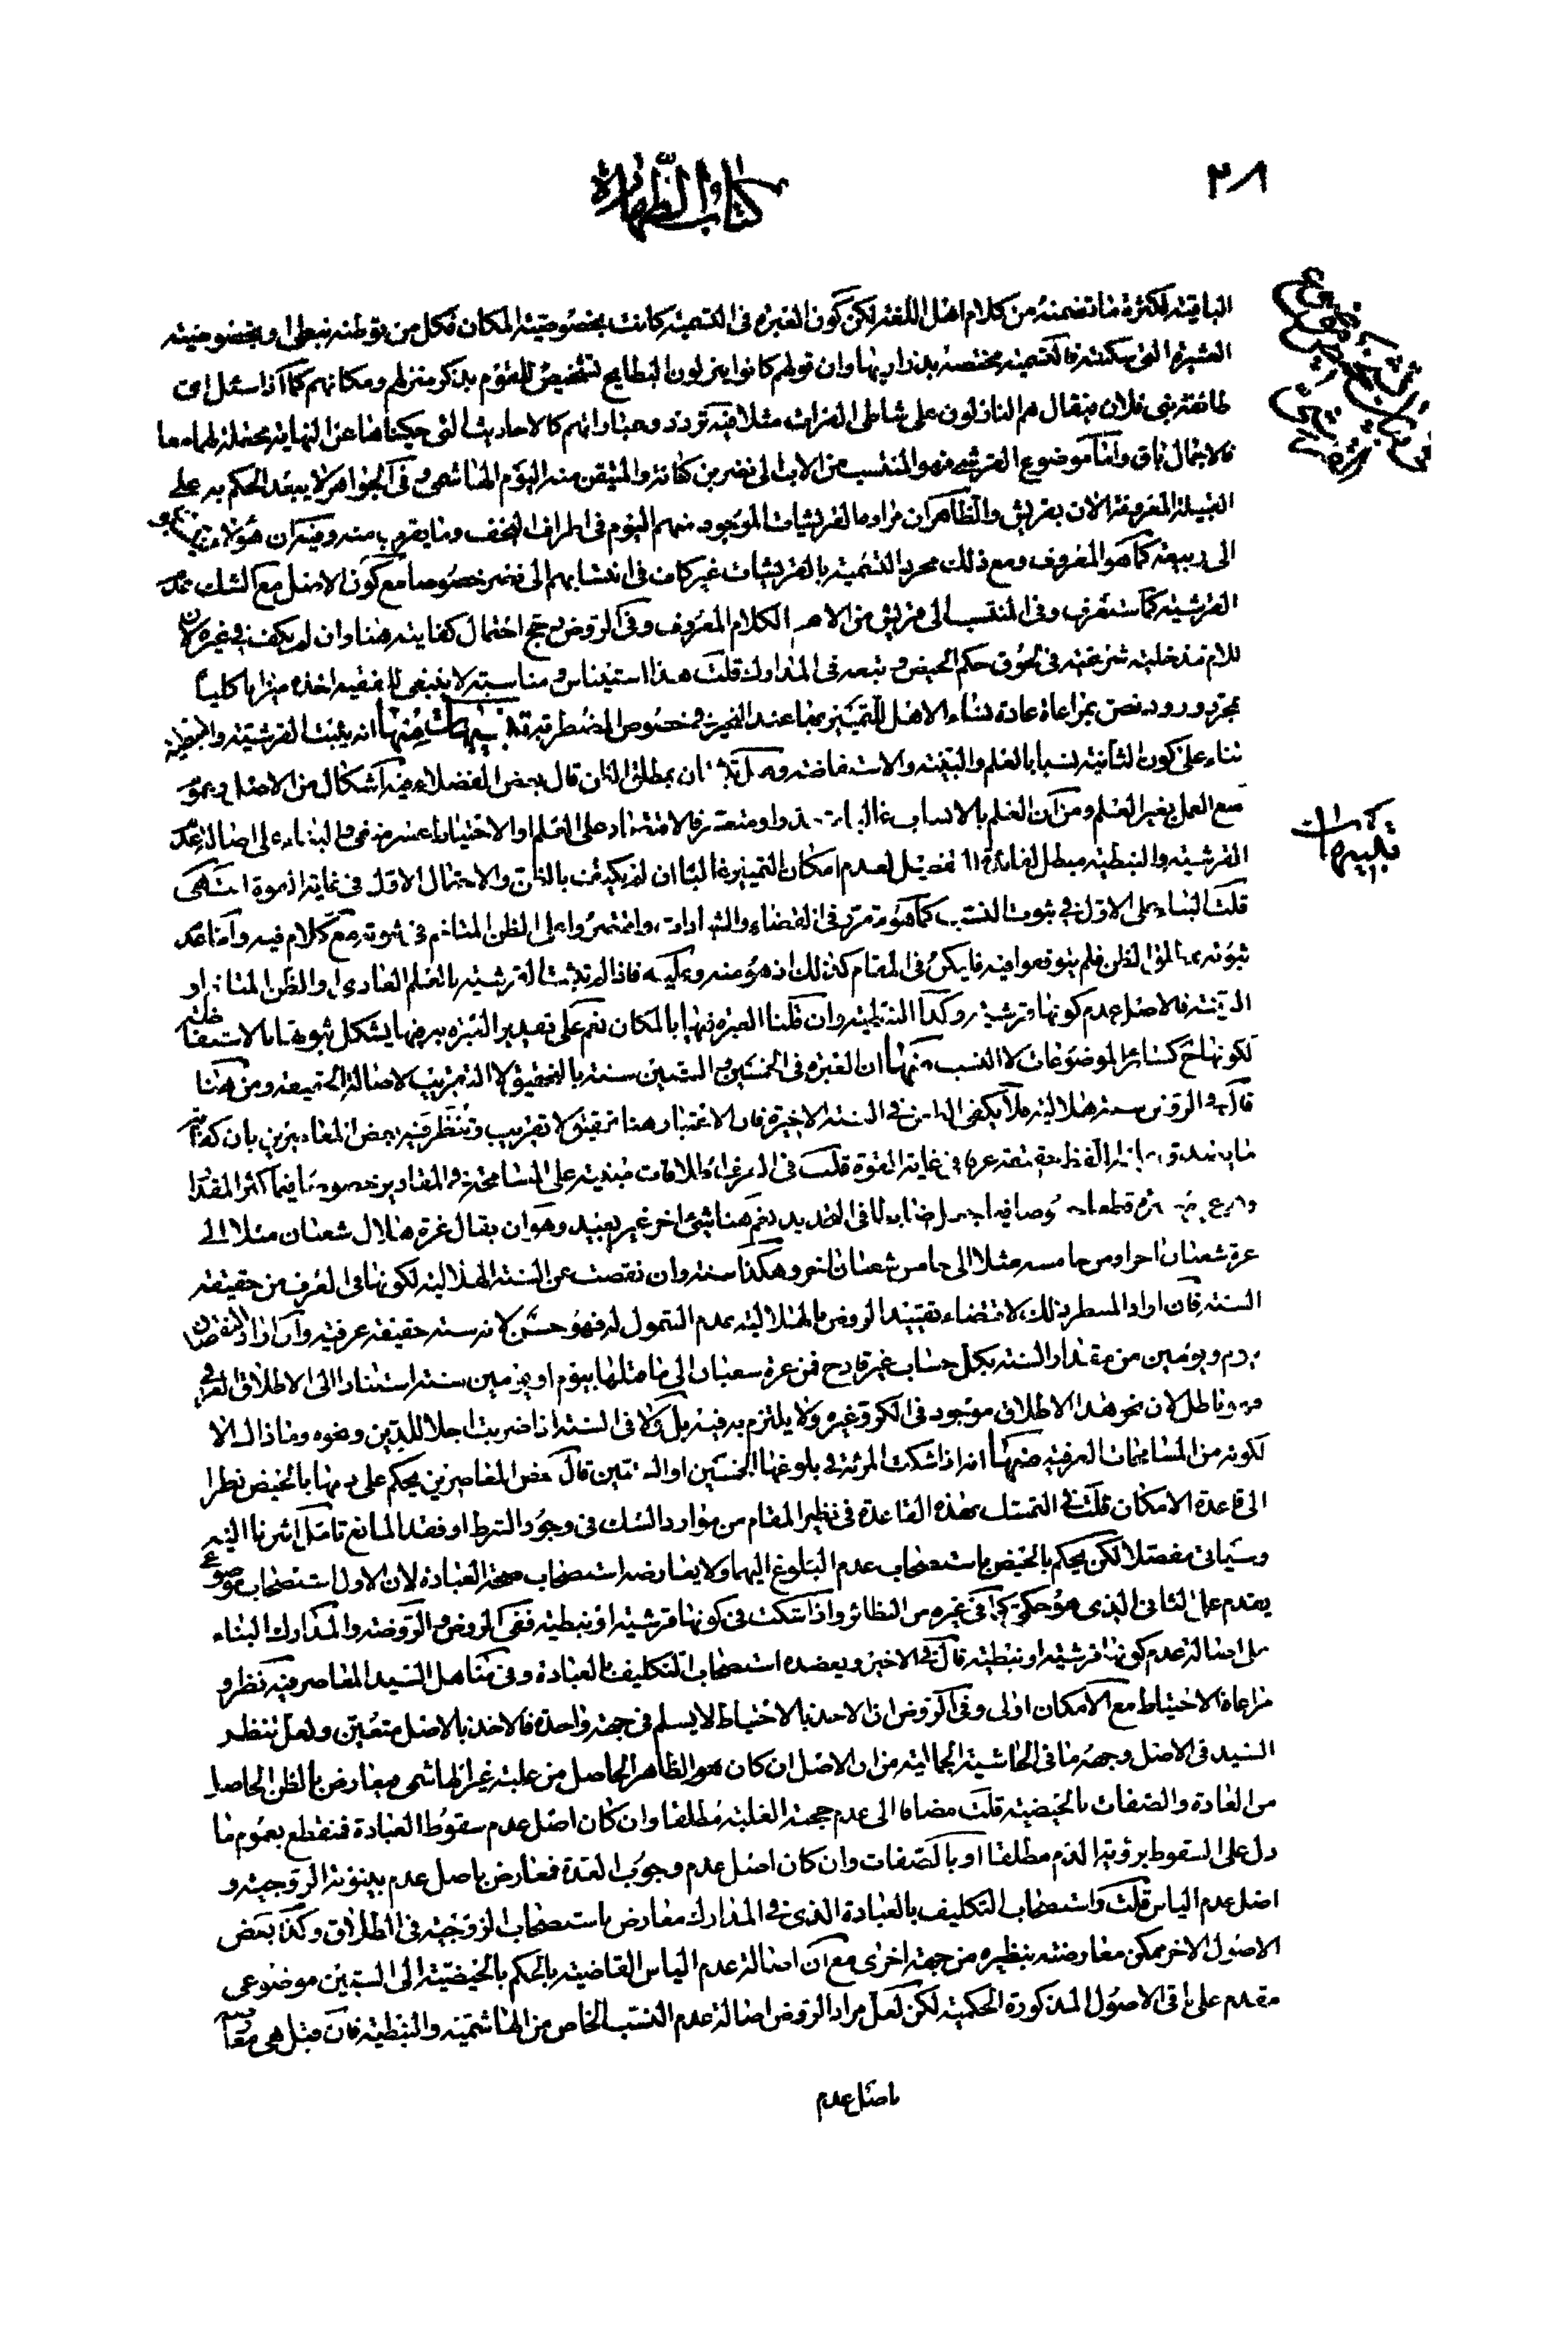 ٢٨
كتاب الطهارة
الباقية لكثرة ما تضمنه من كلام اهل اللغة لكن كون العبرة في التسمية كانت بخصوصية المكان فكل من توطنه نبطي او بخصوصية
العشيرة التي سكنته فالتسمية مختصة بذراريها وان قولهم كانوا ينزلون البطايح تشخيص للقوم بذكر منزلهم ومكانهم كما اذا سئل اي
طائفة بني فلان فيقال هم النازلون على شاطئ الفرات مثلا فيه تردد وعباراتهم كالاحاديث التي حكيناها عن النهاية محتملة لهما معا
فالاجمال باق واما موضوع القرشي فهو المنتسب من الاب الى نضر بن كنانة والمتيقن منه اليوم الهاشمي وفي الجواهر لا يبعد الحكم به على
القبيلة المعروفة الان بقريش والظاهر ان مراده القريشيات الموجود منهم اليوم في اطراف النجف وما يقرب منه وفيه ان هؤلاء
الى ربيعة كما هو المعروف ومع ذلك مجرد التسمية بالقريشيات غير كاف في انتسابهم الى نضر خصوصا مع كون الاصل مع الشك عدم
القرشية كما ستعرف وفي المنتسب الى قريش من الام الكلام المعروف وفي الروض رجح احتمال كفايته هنا وان لم يكف في غيره لان
للام مدخلية شرعية في لحوق حكم الحيض وتبعه في المدارك قلت هذا استيناس ومناسبة لا ينبغي للفقيه اخذه ميزانا كليا
بمجرد ورود نص بمراعاة عادة نساء الاهل للتمييز بها عند التحير في خصوص المضطربة تنبيهات منها انه يثبت القرشية والنبطية
بناء على كون الثانية نسبا بالعلم والبينة والاستفاضة وهل تثبتان بمطلق الظن قال بعض الفضلاء فيه اشكال من الاصل وعموم
منع العمل بغير العلم ومن ان العلم بالانساب غالبا فالاقتصار على العلم او الاحتياط عسر والبناء على اصالة عدم
القرشية والنبطية مبطل لفائدة التفصيل لعدم امكان التمييز غالبا ان لم يكتف بالظن والاحتمال الاول في غاية القوة انتهى
قلت البناء على الاول في ثبوت النسب كما هو مقرر في القضاء والشهادات واقتصروا على الظن المتاخم في ثبوته مع كلام فيه واما عدم
ثبوته بمطلق الظن فلم يتوقفوا فيه فليكن في المقام كذلك اذ هو منه وعليه فاذا لم تثبت القرشية بالعلم العادي او الظن المتاخم او
البينة فالاصل عدم كونها قرشية وكذا النبطية وان قلنا العبرة فيها بالمكان نعم على تقدير العبرة به فيها يشكل ثبوتها بالاستفاضة
لكونها ح كسائر الموضوعات لا النسب ومنها ان العبرة في الخمسين والستين سنة بالتحقيق لا التقريب لاصالة الحقيقة ومن هنا
قال في الروض سنة هلالية فلا يكفي الطعن في السنة الاخيرة فان الاعتبار هنا تحقيق لا تقريب وتنظر فيه بعض المعاصرين بان كفاية
ما يصدق في غاية القوة قلت في العرف اطلاقات مبنية على المسامحة في المقادير خصوصا فيما كثر المقدار
نعم هنا شيء اخر غير بعيد وهو ان يقال غرة هلال شعبان مثلا الى
غرة شعبان اخر او من خامسه مثلا الى خامس شعبان اخر وهكذا سنة وان نقصت عن السنة الهلالية لكونها في العرف من حقيقة
السنة فان اراد المنظر ذلك لاقتضاء تقييد الروض بالهلالية عدم الشمول له فهو حسن لانه سنة حقيقة عرفية وان اراد النقصان
بيوم ويومين من مقدار السنة بكل حساب غير قادح فمن غرة شعبان الى ما قبلها بيوم او يومين سنة استنادا الى الاطلاق العرفي
فهو باطل لان نحو هذا الاطلاق موجود في الكر وغيره ولا يلتزم به فيه بل ولا في السنة اذا ضربت اجلا للدين ونحوه وما ذاك الا
لكونه من المسامحات العرفية منها انه اذا شكت المرئة في بلوغها الخمسين او الستين قال بعض المعاصرين يحكم على دمها بالحيض نظرا
الى قاعدة الامكان قلت في التمسك بهذه القاعدة في نظير المقام من موارد الشك في وجود الشرط او فقد المانع تامل اشرنا اليه
وسياتي مفصلا لكن يحكم بالحيض باستصحاب عدم البلوغ اليهما ولا يعارضه استصحاب صحة العبادة لان الاول استصحاب موضوعي
يقدم على الثاني الذي هو حكمي كما في غيره من النظائر واذا شكت في كونها قرشية او نبطية ففي الروض والروضة والمدارك البناء
على اصالة عدم كونها قرشية او نبطية قال في الاخير ويعضده استصحاب التكليف بالعبادة وفي مناهل السيد المعاصر فيه نظر و
مراعاة الاحتياط مع الامكان اولى وفي الروض ان الاخذ بالاحتياط لا يسلم في جهة واحدة فالاخذ بالاصل متعين ولعل تنظر
السيد في الاصل وجهه ما في الحاشية الجمالية من ان الاصل ان كان هو الظاهر الحاصل من غلبة غير الهاشمي فيعارض بالظن الحاصل
من العادة والصفات بالحيضية قلت مضافا الى عدم حجية الغلبة مطلقا وان كان اصل عدم سقوط العبادة فمنقطع بعموم ما
دل على السقوط برؤية الدم مطلقا او بالصفات وان كان اصل عدم وجوب العدة فمعارض باصل عدم بينونة الزوجية و
اصل عدم الياس قلت واستصحاب التكليف بالعبادة الذي في المدارك معارض باستصحاب الزوجية في الطلاق وكذا بعض
الاصول الاخر ممكن معارضته بنظيره من جهة اخرى مع ان اصالة عدم الياس القاضية بالحكم بالحيضية الى الستين موضوعي
مقدم على باقي الاصول المذكورة الحكمية لكن لعل مراد الروض اصالة عدم النسب الخاص من الهاشمية والنبطية فان قيل هي معارضة
باصل عدم
تنبيهات